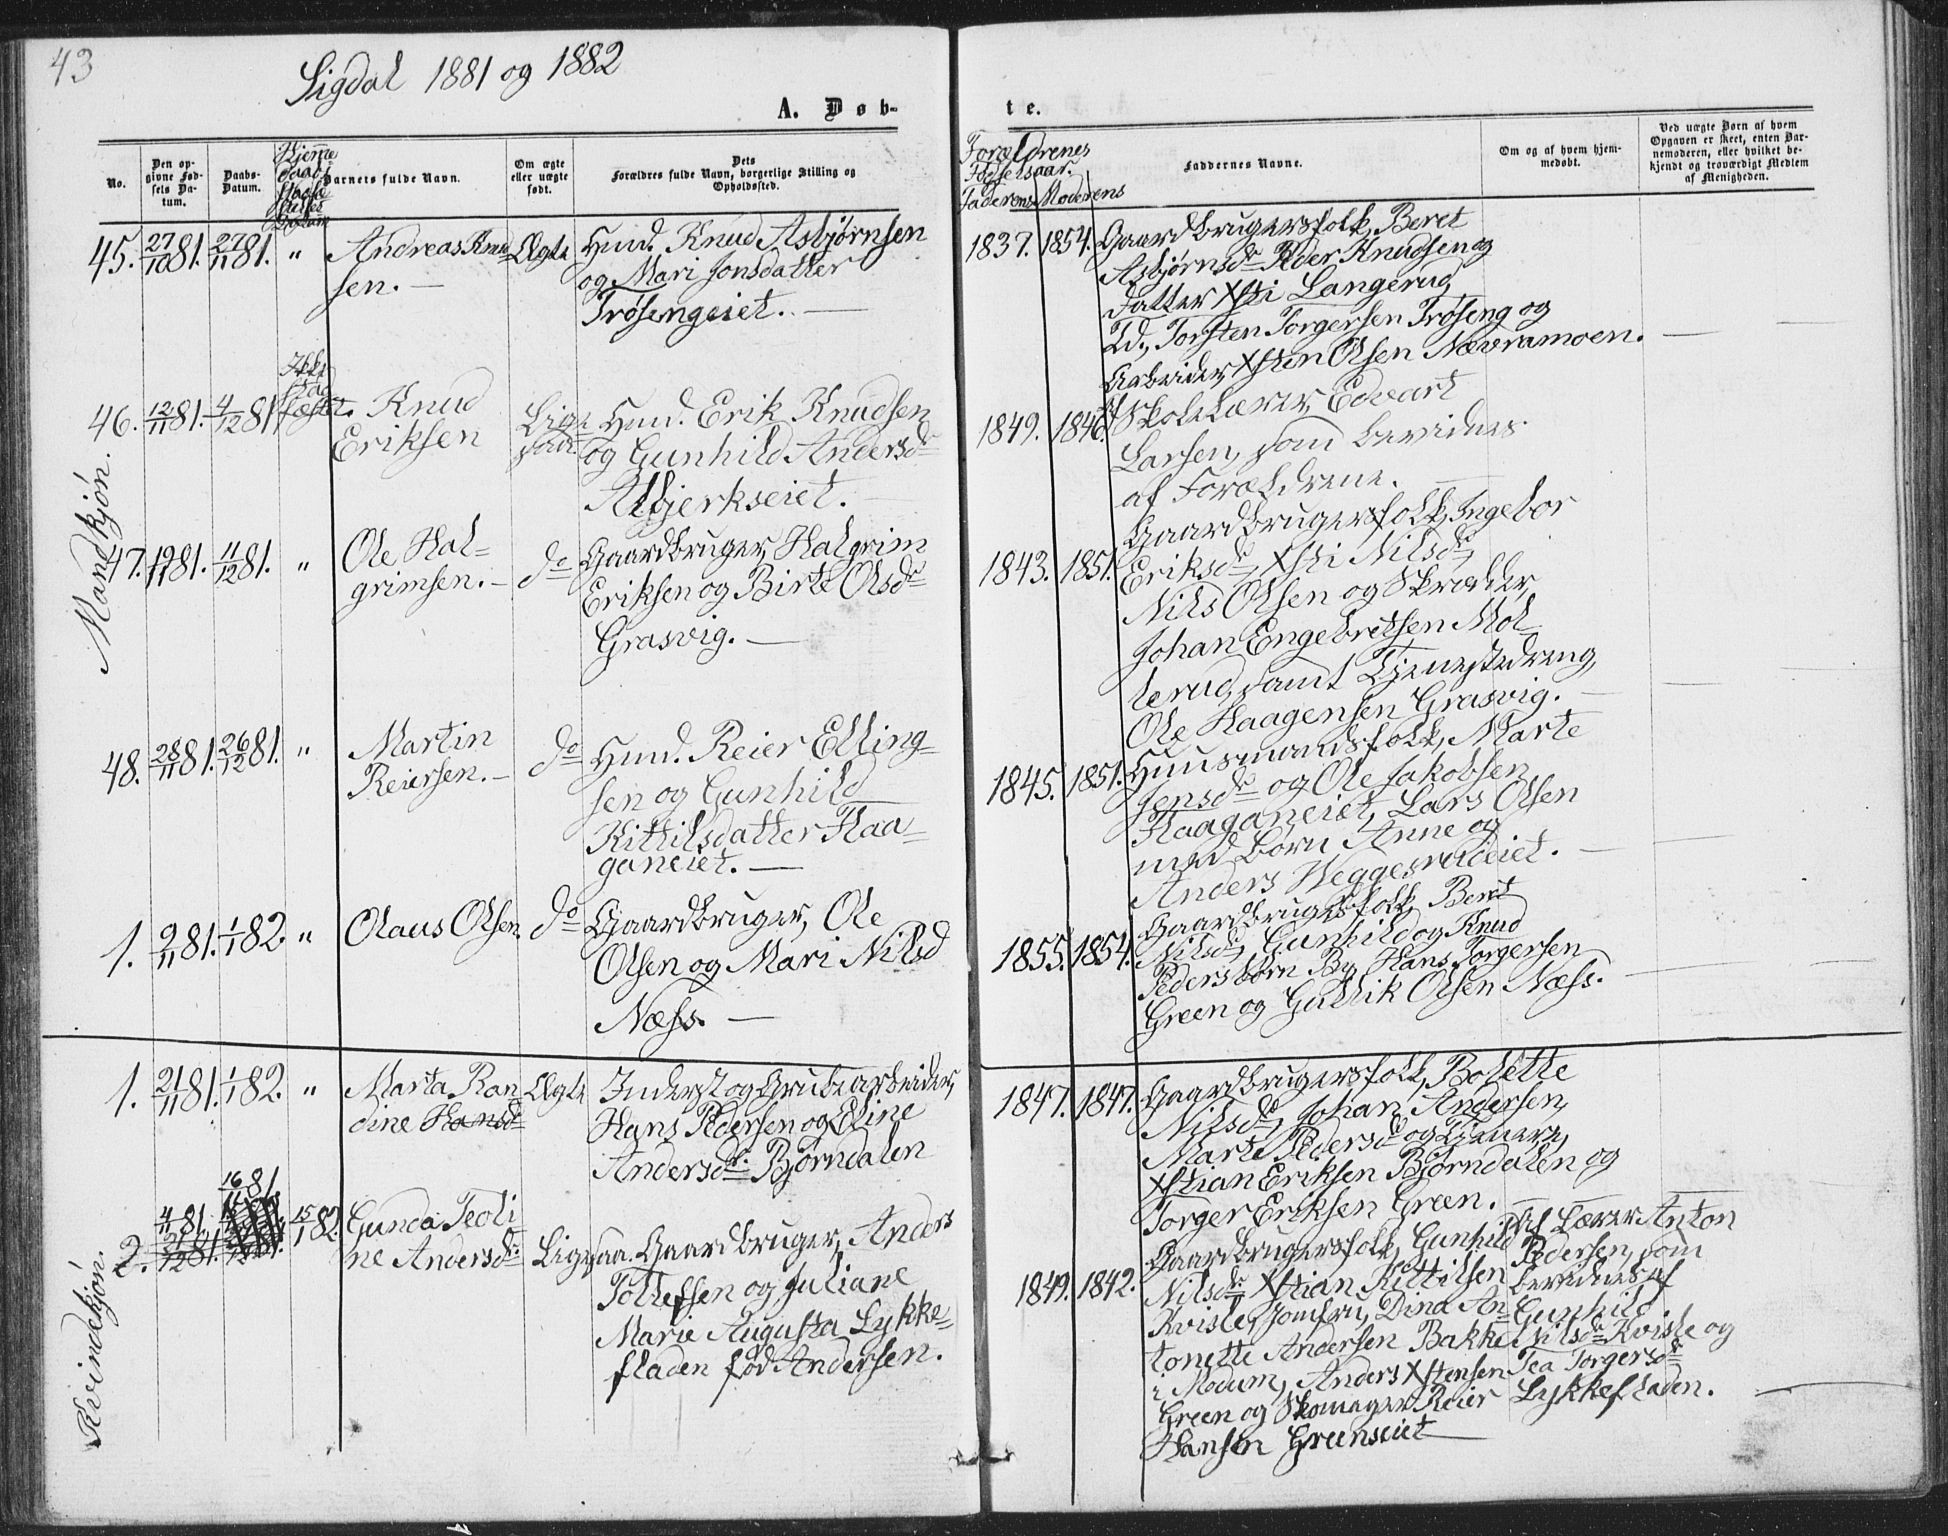 43
Sigdal 1881 og 1882
A. Døb-
te.
No.
Den op-
givne Fød-
sels Da-
tum.
Daabs-
Datum.
Hjemme
daab
Barnets fulde Navn.
Om ægte
eller uægte
født.
Dets
Forældres fulde Navn, borgerlige Stilling og
Opholdssted.
Forældrenes
Fødselsaar.
Faderens Moderens
Faddernes Navne.
Om og af hvem hjem-
medøbt.
Ved uægte Børn af hvem
Opgaven er skeet, enten Bar-
nemoderen, eller hvilket be-
kjendt og troværdigt Medlem
af Menigheden.
Mandkjøn.
45. 27/10 81. 27/11 81. "
Andreas Knud
sen. —
Ægte
Husd. Knud Asbjørnsen
og Mari Jonsdatter
Trøsengeiet. —
1837. 1854.
Gaardbrugersfolk, Beret
Asbjørnsdr Peder Knudsen og
Datter Xsti Langerud,
Ld., Torsten Torgersen Trøseng og
Arbeider Xsten Olsen Nævramoen. —
46. 12/11 81. 4/12 81.
Ikke
stad
fæstet.
Knud
Eriksen
Lige
saa.
Husd. Erik Knudsen
og Gunhild Andersdr
Asbjerkseiet. —
1849. 1846.
Af Skolelærer, Edvart
Larsen, som bevidnes
af Forældrene. —
47. 19/11 81. 11/12 81. "
Ole Hal=
grimsen. —
do
Gaardbruger, Halgrim
Eriksen og Birte Olsdr
Grasvig. —
1843. 1851.
Gaardbrugersfolk, Ingebor
Eriksdr, Xsti Nilsdr,
Nils Olsen og Skræder,
Johan Engebretsen Mol-
lerud, samt Tjenestedreng,
Ole Haagensen Grasvig. —
48. 28/11 81. 26/12 81. "
Martin
Reiersen. —
do
Husd. Reier Elling=
sen og Gunhild
Kittilsdatter Haa=
ganeiet. —
1845. 1851.
Huusmandsfolk, Marte
Jensdr og Ole Jakobsen
Haaganeiet, Lars Olsen
med børn Anne og
Anders Heggesrudeiet. —
1. 9/11 81. 1/1 82. "
Olaus Olsen.
do
Gaardbruger, Ole
Olsen og Mari Nilsd
Næss. —
1855. 1854.
Gaardbrugersfolk, Beret
Nilsdr, Gunhild og Knud
Pedersbørn By, Hans Torgersen
Green og Gullik Olsen Næss. —
Kvindekjøn.
1. 21/11 81. 1/1 82. "
Marta Ran
dine Hansdr
Ægte
Inderst og Grubearbeider,
Hans Pedersen og Eline
Andersdr. Bjørndalen
1847. 1847.
Gaardbrugersfolk, Bolette
Nilsdr, Johan Andersen,
Marte Pedersdr og Tjenere,
Xstian Eriksen Bjørndalen og
Torger Eriksen Green. —
2. 4/11 81. 21/12 81. 16/11 81. 15/1 82.
Gunda Teoli
ne Andersdr.
Ligesaa.
Gaardbruger, Anders
Tollefsen og Juliane
Marie Augusta Lykke=
fladen født Andersen.
1849. 1842.
Gaardbrugersfolk, Gunhild
Nilsdr Xstian Kittilsen
Kvisle, Jomfru, Dina An=
tonette Andersen Bakke
i Modum, Anders Xstensen
Green og Skomager Reier
Hansen Greenseiet —
Af Lærer Anton
Pedersen, som
bevidnes af
Gunhild
Nilsdr Kvisle og
Tea Torgersdr
Lykkefladen. —